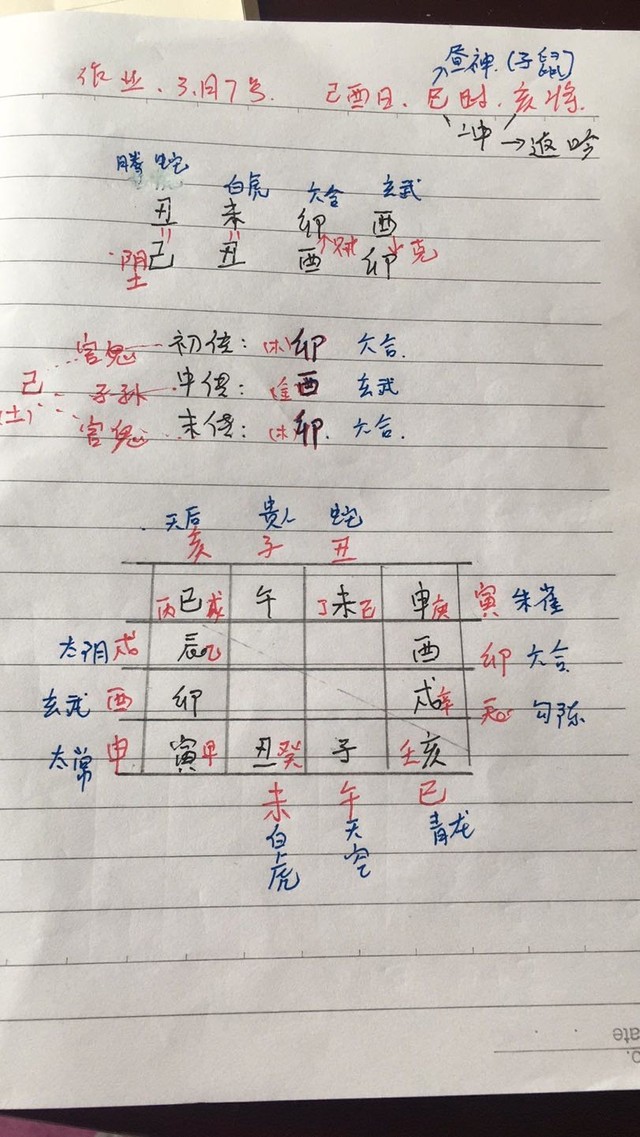 昼神.(子鼠)
作业、3月7号. 己酉日、巳时、亥将.
二冲→返吟
腾蛇 白虎 六合 玄武
丑 未 卯 酉
阴土 己 丑 酉 贼 卯 克
官鬼 初传: (木)卯 六合.
己(土) 子孙 中传: (金)酉 玄武
官鬼 末传: (木)卯. 六合.
天后 贵人 蛇
亥 子 丑
丙巳戊 午 丁未己 申庚 寅 朱雀
太阴 戌 辰乙 酉 卯 六合
玄武 酉 卯 戌辛 辰 勾陈
太常 申 寅甲 丑癸 子 壬亥
未 午 巳
白虎 天空 青龙